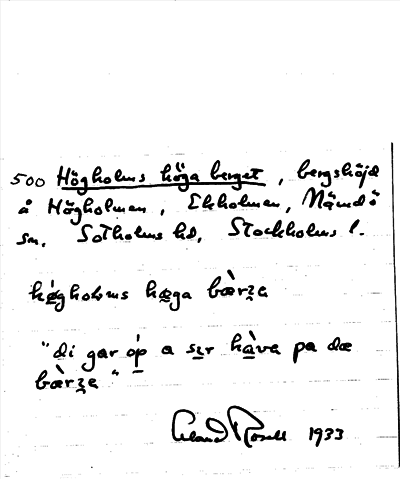 500 Högholms höga berget, bergshöjd
å Högholmen, Ekholmen, Nämdö
sn. Sotholms hd, Stockholms l.
hǿgholms høga bær̀ʒe
"di gar óp a sɪr hàva pa dæ
bær̀ʒe"
Erland Rosell 1933